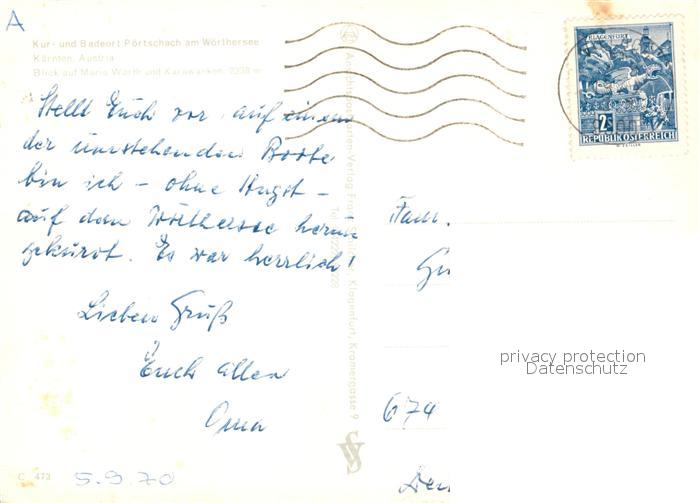 A
Kur- und Badeort Pörtschach am Wörthersee
Kärnten, Austria
Blick auf Maria Wörth und Karawanken, 2239 m
Stellt Euch vor, auf einem
der umstehenden Boote
bin ich – ohne Angst –
auf dem Wörthersee herum
gekurvt. Es war herrlich!
Lieben Gruß
Euch allen
Oma
C 473
5.9.70
Klagenfurt, Kramergasse 9
KLAGENFURT
2S
REPUBLIK ÖSTERREICH
Fam.
674
privacy protection
Datenschutz